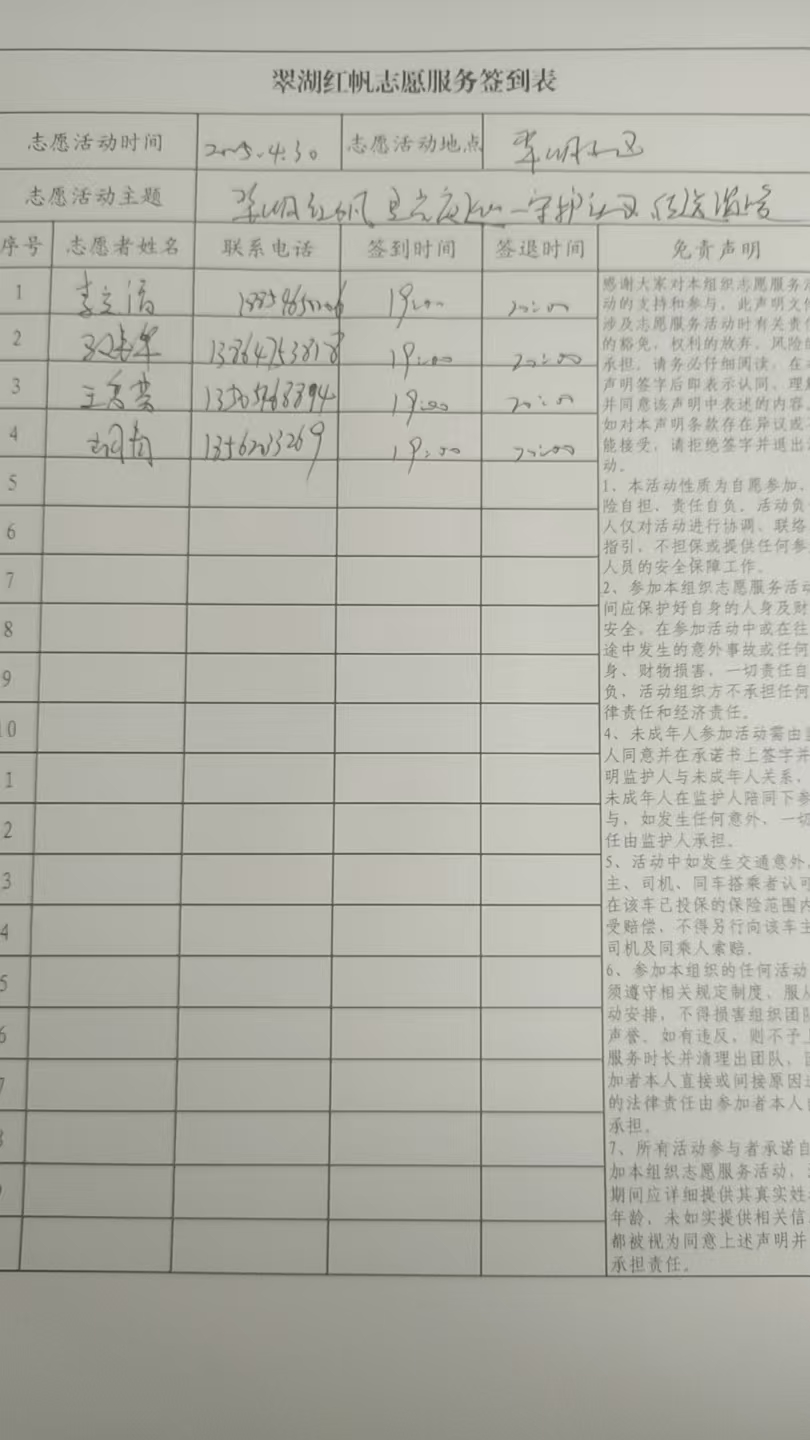 翠湖红帆志愿服务签到表
志愿活动时间 2025.4.30 志愿活动地点 翠湖社区
志愿活动主题 翠湖红帆
序号 志愿者姓名 联系电话 签到时间 签退时间 免责声明
1 19:00 20:00
2 13864753818 19:00 20:00
3 王秀英 19:00 20:00
4 19:00 20:00
5
6
7
8
9
10
1
2
3
4
5
6
7
8
9
感谢大家对本组织志愿服务活
动的支持和参与，此声明文件
涉及志愿服务活动时有关责任
的豁免，权利的放弃，风险的
承担，请务必仔细阅读，在本
声明签字后即表示认同、理解
并同意该声明中表述的内容。
如对本声明条款存在异议或不
能接受，请拒绝签字并退出活
动。
1、本活动性质为自愿参加、
险自担、责任自负，活动负
人仅对活动进行协调、联络
指引，不担保或提供任何参
人员的安全保障工作。
2、参加本组织志愿服务活动
间应保护好自身的人身及财
安全，在参加活动中或在往
途中发生的意外事故或任何
身、财物损害，一切责任自
负，活动组织方不承担任何
律责任和经济责任。
4、未成年人参加活动需由监
人同意并在承诺书上签字并
明监护人与未成年人关系，
未成年人在监护人陪同下参
与，如发生任何意外，一切
任由监护人承担。
5、活动中如发生交通意外，
主、司机、同车搭乘者认可
在该车已投保的保险范围内
受赔偿，不得另行向该车主
司机及同乘人索赔。
6、参加本组织的任何活动
须遵守相关规定制度，服从
动安排，不得损害组织团队
声誉。如有违反，则不予上
服务时长并清理出团队，因
加者本人直接或间接原因造
的法律责任由参加者本人自
承担。
7、所有活动参与者承诺自
加本组织志愿服务活动，
期间应详细提供其真实姓
年龄，未如实提供相关信
都被视为同意上述声明并
承担责任。